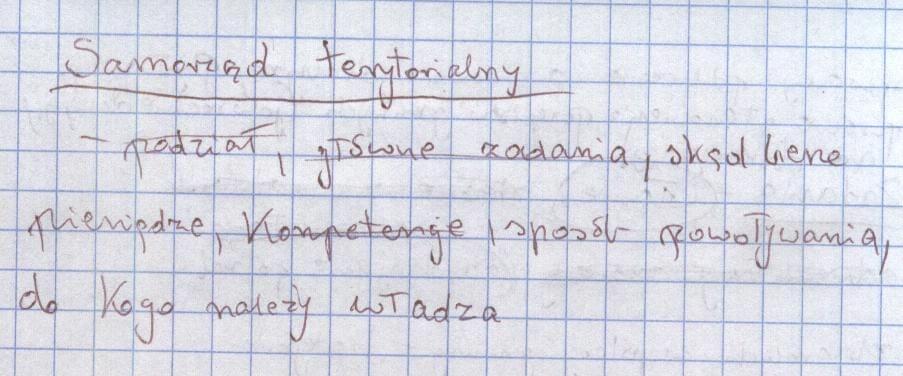 Samorząd terytorialny
- podział, główne zadania, skąd bierze
pieniądze, kompetencje, sposób powoływania,
do kogo należy władza